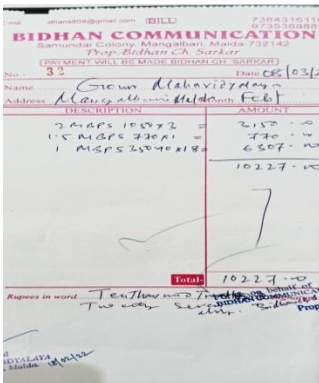 dhans808@gmail.com [BILL] 7384315111
BIDHAN COMMUNICATION
Samundai Colony, Mangalbari, Malda-732142
Prop-Bidhan Ch. Sarkar
PAYMENT WILL BE MADE BIDHAN CH. SARKAR
No.- 32 Date 08/03/2
Name Gour Mahavidyalaya
Address Mangalbari Malda Month Feb
DESCRIPTION AMOUNT
2 MBPS 1050x3 = 3,150.00
1.5 MBPS 770x1 = 770.00
1 MBPS = 6307.00
10227.00
Total- 10227.00
Rupees in word Ten Thousand Two
Twenty Seven only.
on behalf of
BIDHAN COMMUNICA
Prop
DYALAYA
Malda